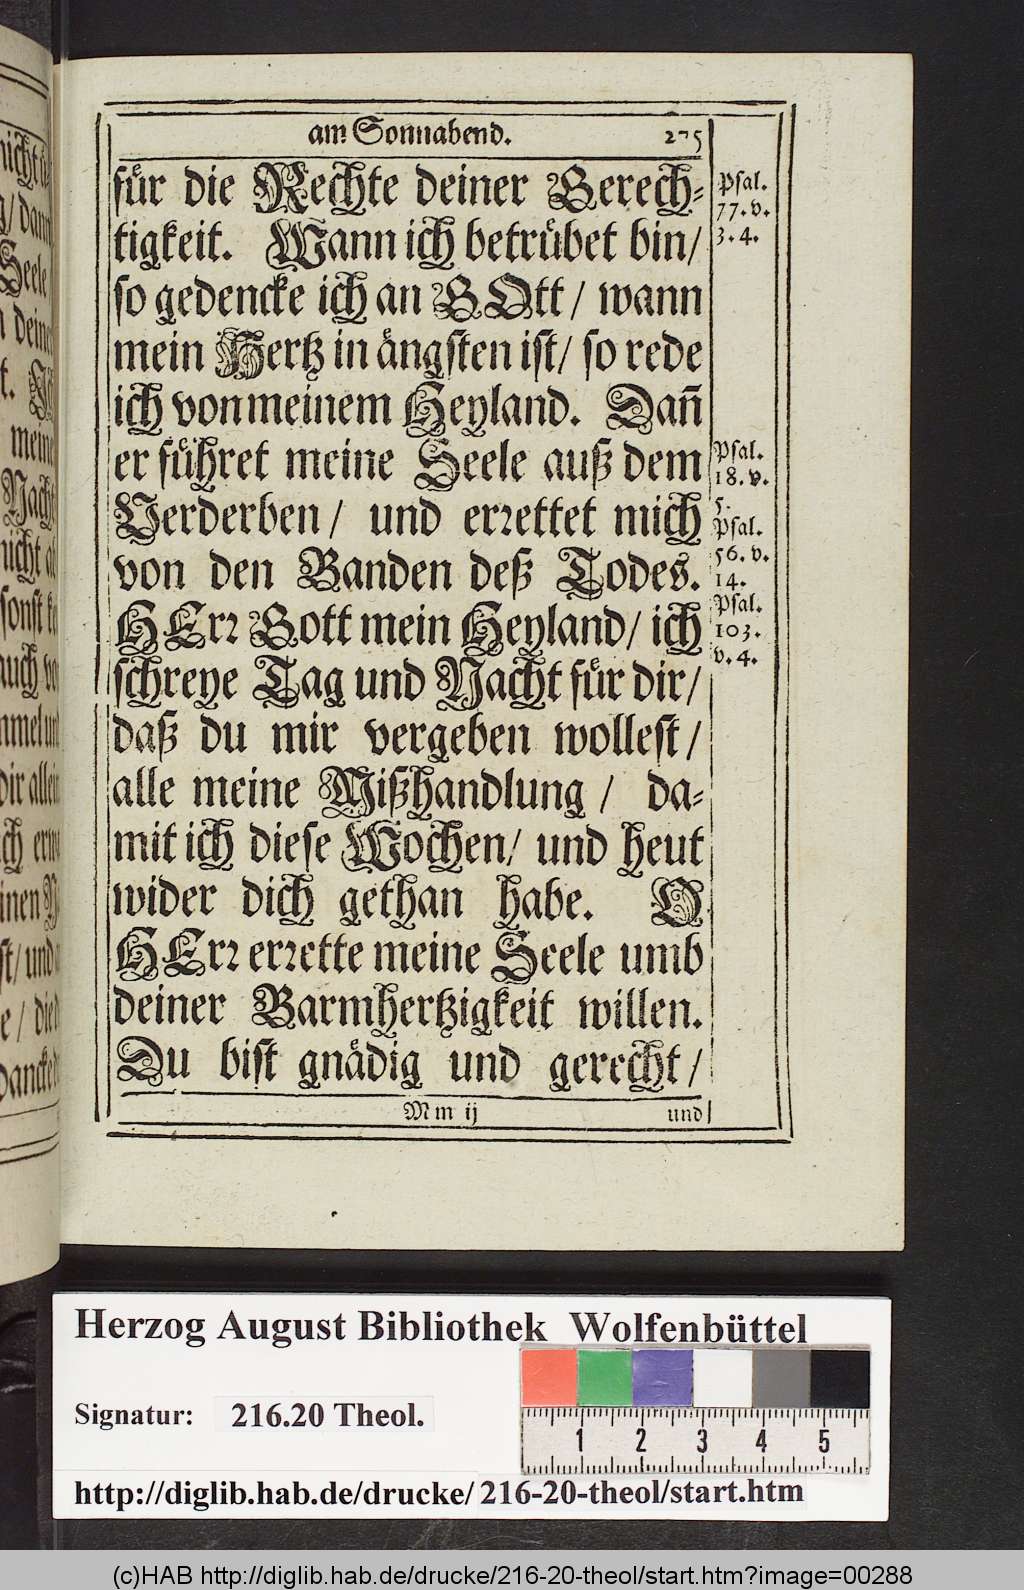 am Sonnabend. 275
für die Rechte deiner Gerech-
tigkeit. Wann ich betrübet bin/
so gedencke ich an GOtt/ wann
mein Hertz in ängsten ist/ so rede
ich von meinem Heyland. Dañ
er führet meine Seele auß dem
Verderben/ und errettet mich
von den Banden deß Todes.
HErr Gott mein Heyland/ ich
schreye Tag und Nacht für dir/
daß du mir vergeben wollest/
alle meine Mißhandlung/ da-
mit ich diese Wochen/ und heut
wider dich gethan habe. O
HErr errette meine Seele umb
deiner Barmhertzigkeit willen.
Du bist gnädig und gerecht/
Mm ij und
Psal.
77. v.
3. 4.
Psal.
18. v.
5.
Psal.
56. v.
14.
Psal.
103.
v. 4.
nicht
dann
Seele
deine
meine
Nacht
nicht
sonst
auch
dir allein
und
Herzog August Bibliothek Wolfenbüttel
Signatur: 216.20 Theol.
1 2 3 4 5
http://diglib.hab.de/drucke/216-20-theol/start.htm
(c)HAB http://diglib.hab.de/drucke/216-20-theol/start.htm?image=00288